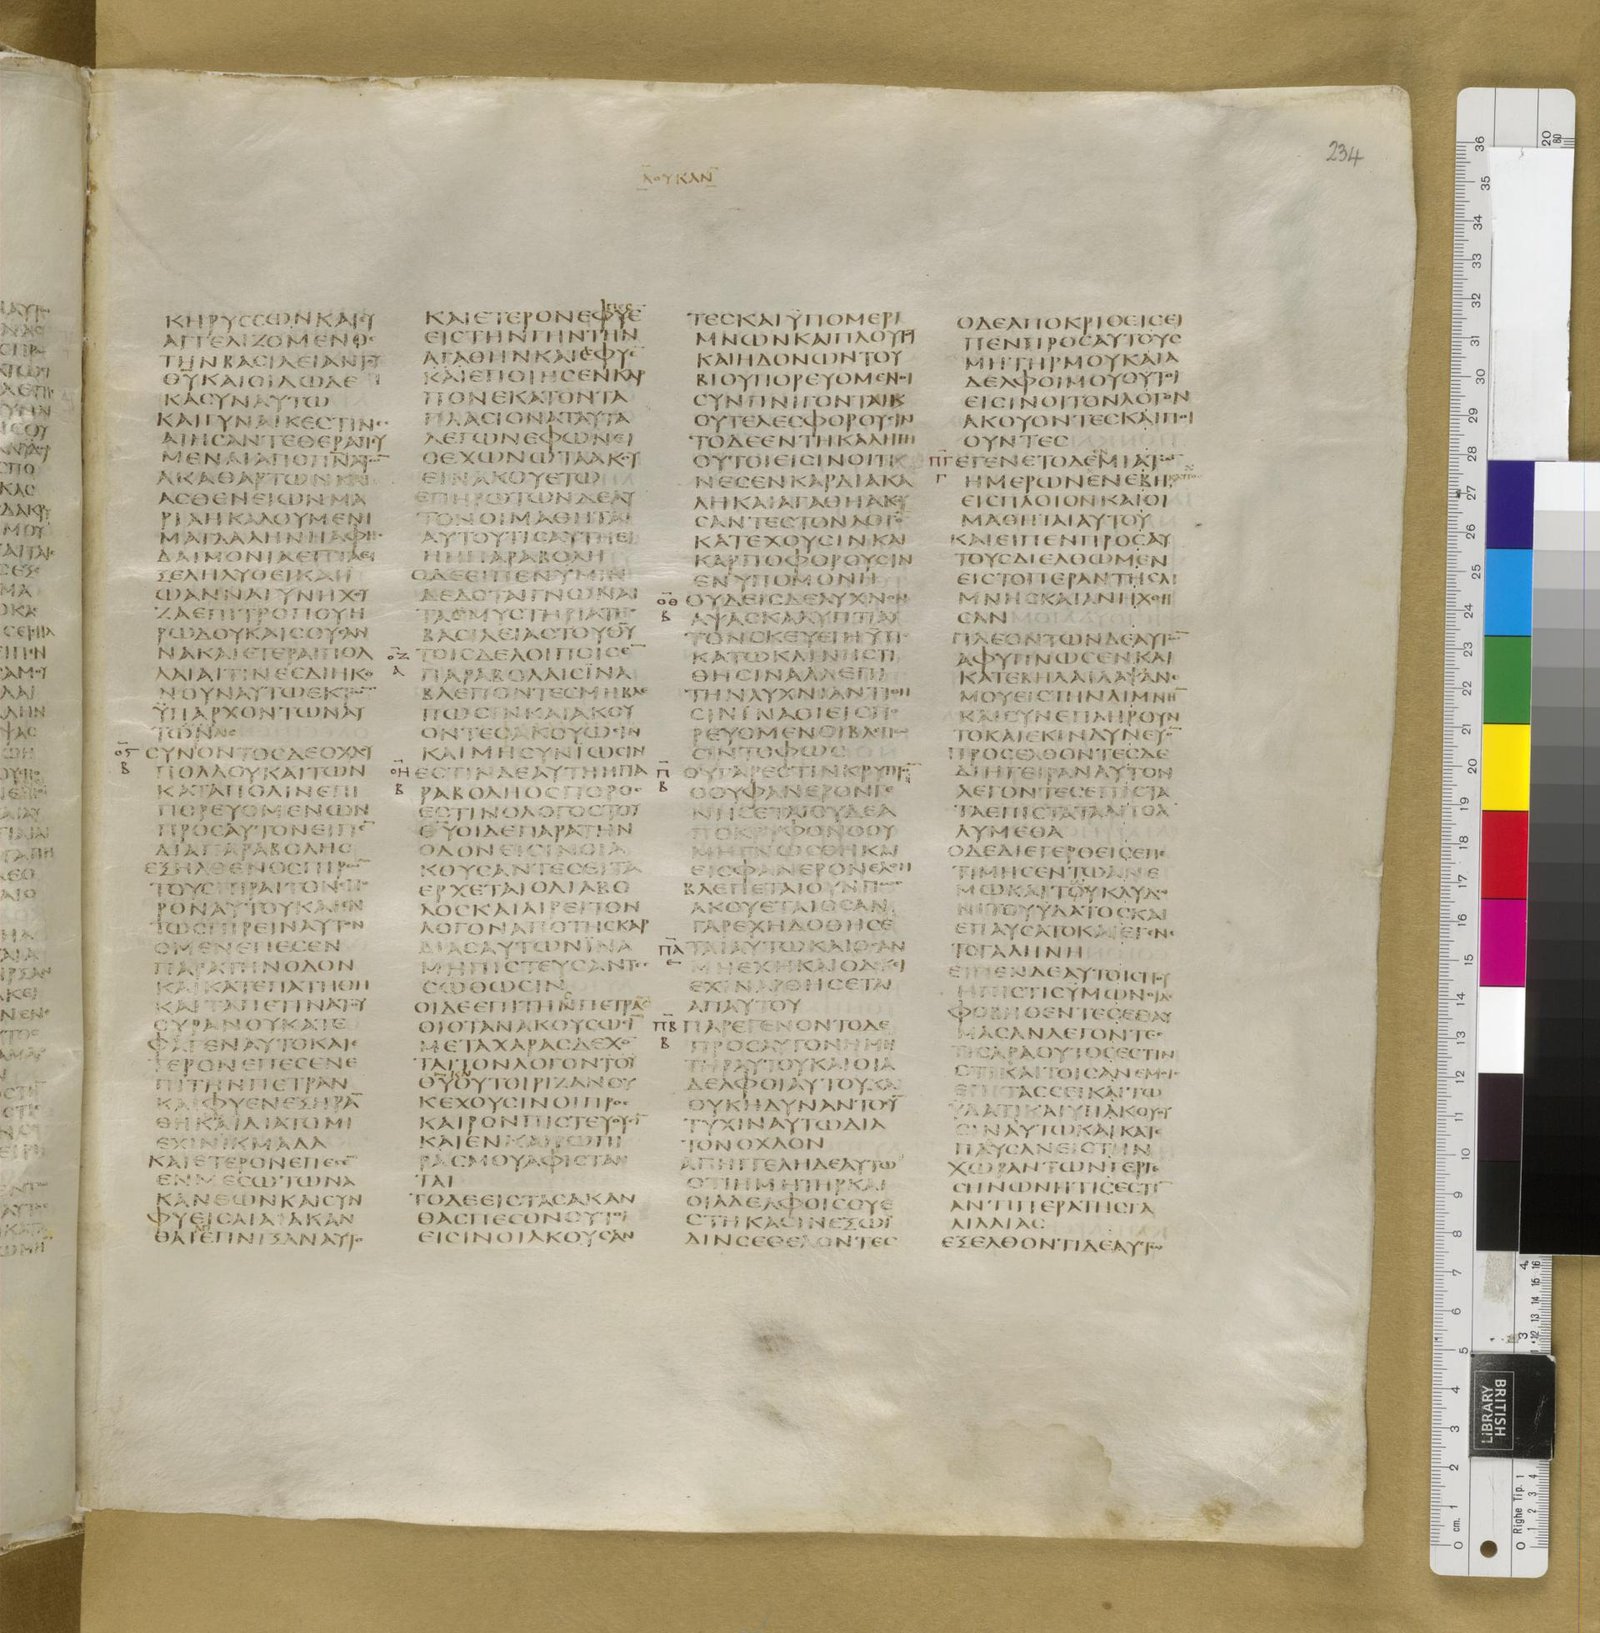 234
ΛΟΥΚΑΝ
ΚΗΡΥϹϹΩΝΚΑΙΕΥ
ΑΓΓΕΛΙΖΟΜΕΝΟϹ
ΤΗΝΒΑΣΙΛΕΙΑΝΤΟΥ
ΘΥΚΑΙΟΙΔΩΔΕ
ΚΑϹΥΝΑΥΤΩ
ΚΑΙΓΥΝΑΙΚΕϹΤΙΝΕϹ
ΑΙΗϹΑΝΤΕΘΕΡΑΠΕΥ
ΜΕΝΑΙΑΠΟΠΝΑΤΩ̅
ΑΚΑΘΑΡΤΩΝΚΑΙ
ΑϹΘΕΝΕΙΩΝΜΑ
ΡΙΑΗΚΑΛΟΥΜΕΝΗ
ΜΑΓΔΑΛΗΝΗΑΦΗϹ
ΔΑΙΜΟΝΙΑΕΠΤΑΕ
ΞΕΛΗΛΥΘΕΙΚΑΙΙ
ΩΑΝΝΑΓΥΝΗΧΟΥ
ΖΑΕΠΙΤΡΟΠΟΥΗ
ΡΩΔΟΥΚΑΙϹΟΥϹΑΝ
ΝΑΚΑΙΕΤΕΡΑΙΠΟΛ
ΛΑΙΑΙΤΙΝΕϹΔΙΗΚΟ
ΝΟΥΝΑΥΤΩΕΚΤΩ̅
ΫΠΑΡΧΟΝΤΩΝΑΥ
ΤΩΝ
Ο̅Ϛ̅ Β
ϹΥΝΟΝΤΟϹΔΕΟΧΛΟΥ
ΠΟΛΛΟΥΚΑΙΤΩΝ
ΚΑΤΑΠΟΛΙΝΕΠΙ
ΠΟΡΕΥΟΜΕΝΩΝ
ΠΡΟϹΑΥΤΟΝΕΙΠΕ̅
ΔΙΑΠΑΡΑΒΟΛΗϹ
ΕΞΗΛΘΕΝΟϹΠΙΡΩ̅
ΤΟΥϹΠΙΡΑΙΤΟΝϹΠΟ
ΡΟΝΑΥΤΟΥΚΑΙΕΝ
ΤΩϹΠΙΡΕΙΝΑΥΤΟΝ
ΟΜΕΝΕΠΕϹΕΝ
ΠΑΡΑΤΗΝΟΔΟΝ
ΚΑΙΚΑΤΕΠΑΤΗΘΗ
ΚΑΙΤΑΠΕΤΙΝΑΤΟΥ
ΟΥΡΑΝΟΥΚΑΤΕ
ΦΑΓΕΝΑΥΤΟΚΑΙΕ
ΤΕΡΟΝΕΠΕϹΕΝΕ
ΠΙΤΗΝΠΕΤΡΑΝ
ΚΑΙΦΥΕΝΕΞΗΡΑ̅
ΘΗΚΑΙΔΙΑΤΟΜΗ
ΕΧΙΝΙΚΜΑΔΑ
ΚΑΙΕΤΕΡΟΝΕΠΕϹΕ̅
ΕΝΜΕϹΩΤΩΝΑ
ΚΑΝΘΩΝΚΑΙϹΥΝ
ΦΥΕΙϹΑΙΑΙΑΚΑΝ
ΘΑΙΕΠΝΙΞΑΝΑΥΤΟ
ΚΑΙΕΤΕΡΟΝΕΦΥΕ
ΕΙϹΤΗΝΓΗΝΤΗΝ
ΑΓΑΘΗΝΚΑΙΕΦΥΕ̅
ΚΑΙΕΠΟΙΗϹΕΝΚΑΡ
ΠΟΝΕΚΑΤΟΝΤΑ
ΠΛΑϹΙΟΝΑΤΑΥΤΑ
ΛΕΓΩΝΕΦΩΝΕΙ
ΟΕΧΩΝΩΤΑΑΚΟΥ
ΕΙΝΑΚΟΥΕΤΩ
ΕΠΗΡΩΤΩΝΔΕΑΥ
ΤΟΝΟΙΜΑΘΗΤΑΙ
ΑΥΤΟΥΤΙϹΑΥΤΗΕΙ
ΗΗΠΑΡΑΒΟΛΗ
ΟΔΕΕΙΠΕΝΫΜΙΝ
ΔΕΔΟΤΑΙΓΝΩΝΑΙ
ΤΑΜΥϹΤΗΡΙΑΤΗϹ
ΒΑϹΙΛΕΙΑϹΤΟΥΘΥ
Ο̅Ζ̅ Α
ΤΟΙϹΔΕΛΟΙΠΟΙϹΕ̅
ΠΑΡΑΒΟΛΑΙϹΪΝΑ
ΒΛΕΠΟΝΤΕϹΜΗΒΛΕ
ΠΩϹΙΝΚΑΙΑΚΟΥ
ΟΝΤΕϹΑΚΟΥΩϹΙΝ
ΚΑΙΜΗϹΥΝΙΩϹΙΝ
Ο̅Η̅ Β
ΕϹΤΙΝΔΕΑΥΤΗΗΠΑ
ΡΑΒΟΛΗΟϹΠΟΡΟϹ
ΕϹΤΙΝΟΛΟΓΟϹΤΟΥ
ΘΥΟΙΔΕΠΑΡΑΤΗΝ
ΟΔΟΝΕΙϹΙΝΟΙΑ
ΚΟΥϹΑΝΤΕϹΕΙΤΑ
ΕΡΧΕΤΑΙΟΔΙΑΒΟ
ΛΟϹΚΑΙΑΙΡΕΙΤΟΝ
ΛΟΓΟΝΑΠΟΤΗϹΚΑΡ
ΔΙΑϹΑΥΤΩΝΪΝΑ
ΜΗΠΙϹΤΕΥϹΑΝΤΕϹ
ϹΩΘΩϹΙΝ
ΟΙΔΕΕΠΙΤΗΝΠΕΤΡΑ̅
ΟΙΟΤΑΝΑΚΟΥϹΩϹΙ̅
ΜΕΤΑΧΑΡΑϹΔΕΧΟ̅
ΤΑΙΤΟΝΛΟΓΟΝΤΟΥ
ΘΥΟΥΤΟΙΡΙΖΑΝΟΥ
ΚΕΧΟΥϹΙΝΟΙΠΡΟϹ
ΚΑΙΡΟΝΠΙϹΤΕΥΟΥϹΙ̅
ΚΑΙΕΝΚΑΙΡΩΠΙ
ΡΑϹΜΟΥΑΦΙϹΤΑΝ
ΤΑΙ
ΤΟΔΕΕΙϹΤΑϹΑΚΑΝ
ΘΑϹΠΕϹΟΝΟΥΤΟΙ
ΕΙϹΙΝΟΙΑΚΟΥϹΑΝ
ΤΕϹΚΑΙΫΠΟΜΕΡΙ
ΜΝΩΝΚΑΙΠΛΟΥΤΟΥ
ΚΑΙΗΔΟΝΩΝΤΟΥ
ΒΙΟΥΠΟΡΕΥΟΜΕΝΟΙ
ϹΥΝΠΝΙΓΟΝΤΑΙΚ
ΟΥΤΕΛΕϹΦΟΡΟΥϹΙΝ
ΤΟΔΕΕΝΤΗΚΑΛΗΓΗ
ΟΥΤΟΙΕΙϹΙΝΟΙΤΙ
ΝΕϹΕΝΚΑΡΔΙΑΚΑ
ΛΗΚΑΙΑΓΑΘΗΑΚΟΥ
ϹΑΝΤΕϹΤΟΝΛΟΓΟ̅
ΚΑΤΕΧΟΥϹΙΝΚΑΙ
ΚΑΡΠΟΦΟΡΟΥϹΙΝ
ΕΝΫΠΟΜΟΝΗ
Ο̅Θ̅ Β
ΟΥΔΕΙϹΔΕΛΥΧΝΟΝ
ΑΨΑϹΚΑΛΥΠΤΕΙΑΥ
ΤΟΝϹΚΕΥΕΙΗΫΠΟ
ΚΑΤΩΚΛΙΝΗϹΤΙ
ΘΗϹΙΝΑΛΛΕΠΙ
ΤΗΝΛΥΧΝΙΑΝΤΙΘΗ
ϹΙΝΪΝΑΟΙΕΙϹΠΟ
ΡΕΥΟΜΕΝΟΙΒΛΕΠΩ
ϹΙΝΤΟΦΩϹ
Π̅ Β
ΟΥΓΑΡΕϹΤΙΝΚΡΥΠΤΟ̅
ΟΟΥΦΑΝΕΡΟΝΓΕ
ΝΗϹΕΤΑΙΟΥΔΕΑ
ΠΟΚΡΥΦΟΝΟΟΥ
ΜΗΓΝΩϹΘΗΚΑΙ
ΕΙϹΦΑΝΕΡΟΝΕΛΘΗ
ΒΛΕΠΕΤΑΙΟΥΝΠΩϹ
ΑΚΟΥΕΤΑΙΟϹΑΝ
ΓΑΡΕΧΗΔΟΘΗϹΕ
Π̅Α̅
ΤΑΙΑΥΤΩΚΑΙΟϹΑΝ
ΜΗΕΧΗΚΑΙΟΔΟΚΕΙ
ΕΧΙΝΑΡΘΗϹΕΤΑΙ
ΑΠΑΥΤΟΥ
Π̅Β̅ Β
ΠΑΡΕΓΕΝΟΝΤΟΔΕ
ΠΡΟϹΑΥΤΟΝΗΜΗ
ΤΗΡΑΥΤΟΥΚΑΙΟΙΑ
ΔΕΛΦΟΙΑΥΤΟΥΚΑΙ
ΟΥΚΗΔΥΝΑΝΤΟϹΥ̅
ΤΥΧΙΝΑΥΤΩΔΙΑ
ΤΟΝΟΧΛΟΝ
ΑΠΗΓΓΕΛΗΔΕΑΥΤΩ
ΟΤΙΗΜΗΤΗΡΚΑΙ
ΟΙΑΔΕΛΦΟΙϹΟΥΕ
ϹΤΗΚΑϹΙΝΕΞΩΪ
ΔΙΝϹΕΘΕΛΟΝΤΕϹ
ΟΔΕΑΠΟΚΡΙΘΕΙϹΕΙ
ΠΕΝΠΡΟϹΑΥΤΟΥϹ
ΜΗΤΗΡΜΟΥΚΑΙΑ
ΔΕΛΦΟΙΜΟΥΟΥΤΟΙ
ΕΙϹΙΝΟΙΤΟΝΛΟΓΟΝ
ΑΚΟΥΟΝΤΕϹΚΑΙΠΟΙ
ΟΥΝΤΕϹ
Π̅Γ̅ Γ
ΕΓΕΝΕΤΟΔΕΜΙΑΤΩ̅
ΗΜΕΡΩΝΕΝΕΒΗ
ΕΙϹΠΛΟΙΟΝΚΑΙΟΙ
ΜΑΘΗΤΑΙΑΥΤΟΥ
ΚΑΙΕΙΠΕΝΠΡΟϹΑΥ
ΤΟΥϹΔΙΕΛΘΩΜΕΝ
ΕΙϹΤΟΠΕΡΑΝΤΗϹΛΙ
ΜΝΗϹΚΑΙΑΝΗΧΘΗ
ϹΑΝ
ΠΛΕΟΝΤΩΝΔΕΑΥΤΩ̅
ΑΦΥΠΝΩϹΕΝΚΑΙ
ΚΑΤΕΒΗΛΑΙΛΑΨΑΝΕ
ΜΟΥΕΙϹΤΗΝΛΙΜΝΗ̅
ΚΑΙϹΥΝΕΠΛΗΡΟΥΝ
ΤΟΚΑΙΕΚΙΝΔΥΝΕΥΟ̅
ΠΡΟϹΕΛΘΟΝΤΕϹΔΕ
ΔΙΗΓΕΙΡΑΝΑΥΤΟΝ
ΛΕΓΟΝΤΕϹΕΠΙϹΤΑ
ΤΑΕΠΙϹΤΑΤΑΑΠΟΛ
ΛΥΜΕΘΑ
ΟΔΕΔΙΕΓΕΡΘΕΙϹΕΠΕ
ΤΙΜΗϹΕΝΤΩΑΝΕ
ΜΩΚΑΙΤΩΚΛΥΔΩ
ΝΙΤΟΥΫΔΑΤΟϹΚΑΙ
ΕΠΑΥϹΑΤΟΚΑΙΕΓΕΝΕ
ΤΟΓΑΛΗΝΗ
ΕΙΠΕΝΔΕΑΥΤΟΙϹΠΟΥ
ΗΠΙϹΤΙϹΫΜΩΝ
ΦΟΒΗΘΕΝΤΕϹΕΘΑΥ
ΜΑϹΑΝΛΕΓΟΝΤΕϹ
ΤΙϹΑΡΑΟΥΤΟϹΕϹΤΙΝ
ΟΤΙΚΑΙΤΟΙϹΑΝΕΜΟΙϹ
ΕΠΙΤΑϹϹΕΙΚΑΙΤΩ
ΫΔΑΤΙΚΑΙΥΠΑΚΟΥΟΥ
ϹΙΝΑΥΤΩΚΑΙΚΑΤΕ
ΠΛΕΥϹΑΝΕΙϹΤΗΝ
ΧΩΡΑΝΤΩΝΓΕΡΓΕ
ϹΗΝΩΝΗΤΙϹΕϹΤΙ̅
ΑΝΤΙΠΕΡΑΤΗϹΓΑ
ΛΙΛΑΙΑϹ
ΕΞΕΛΘΟΝΤΙΔΕΑΥΤΩ
BRITISH
LIBRARY